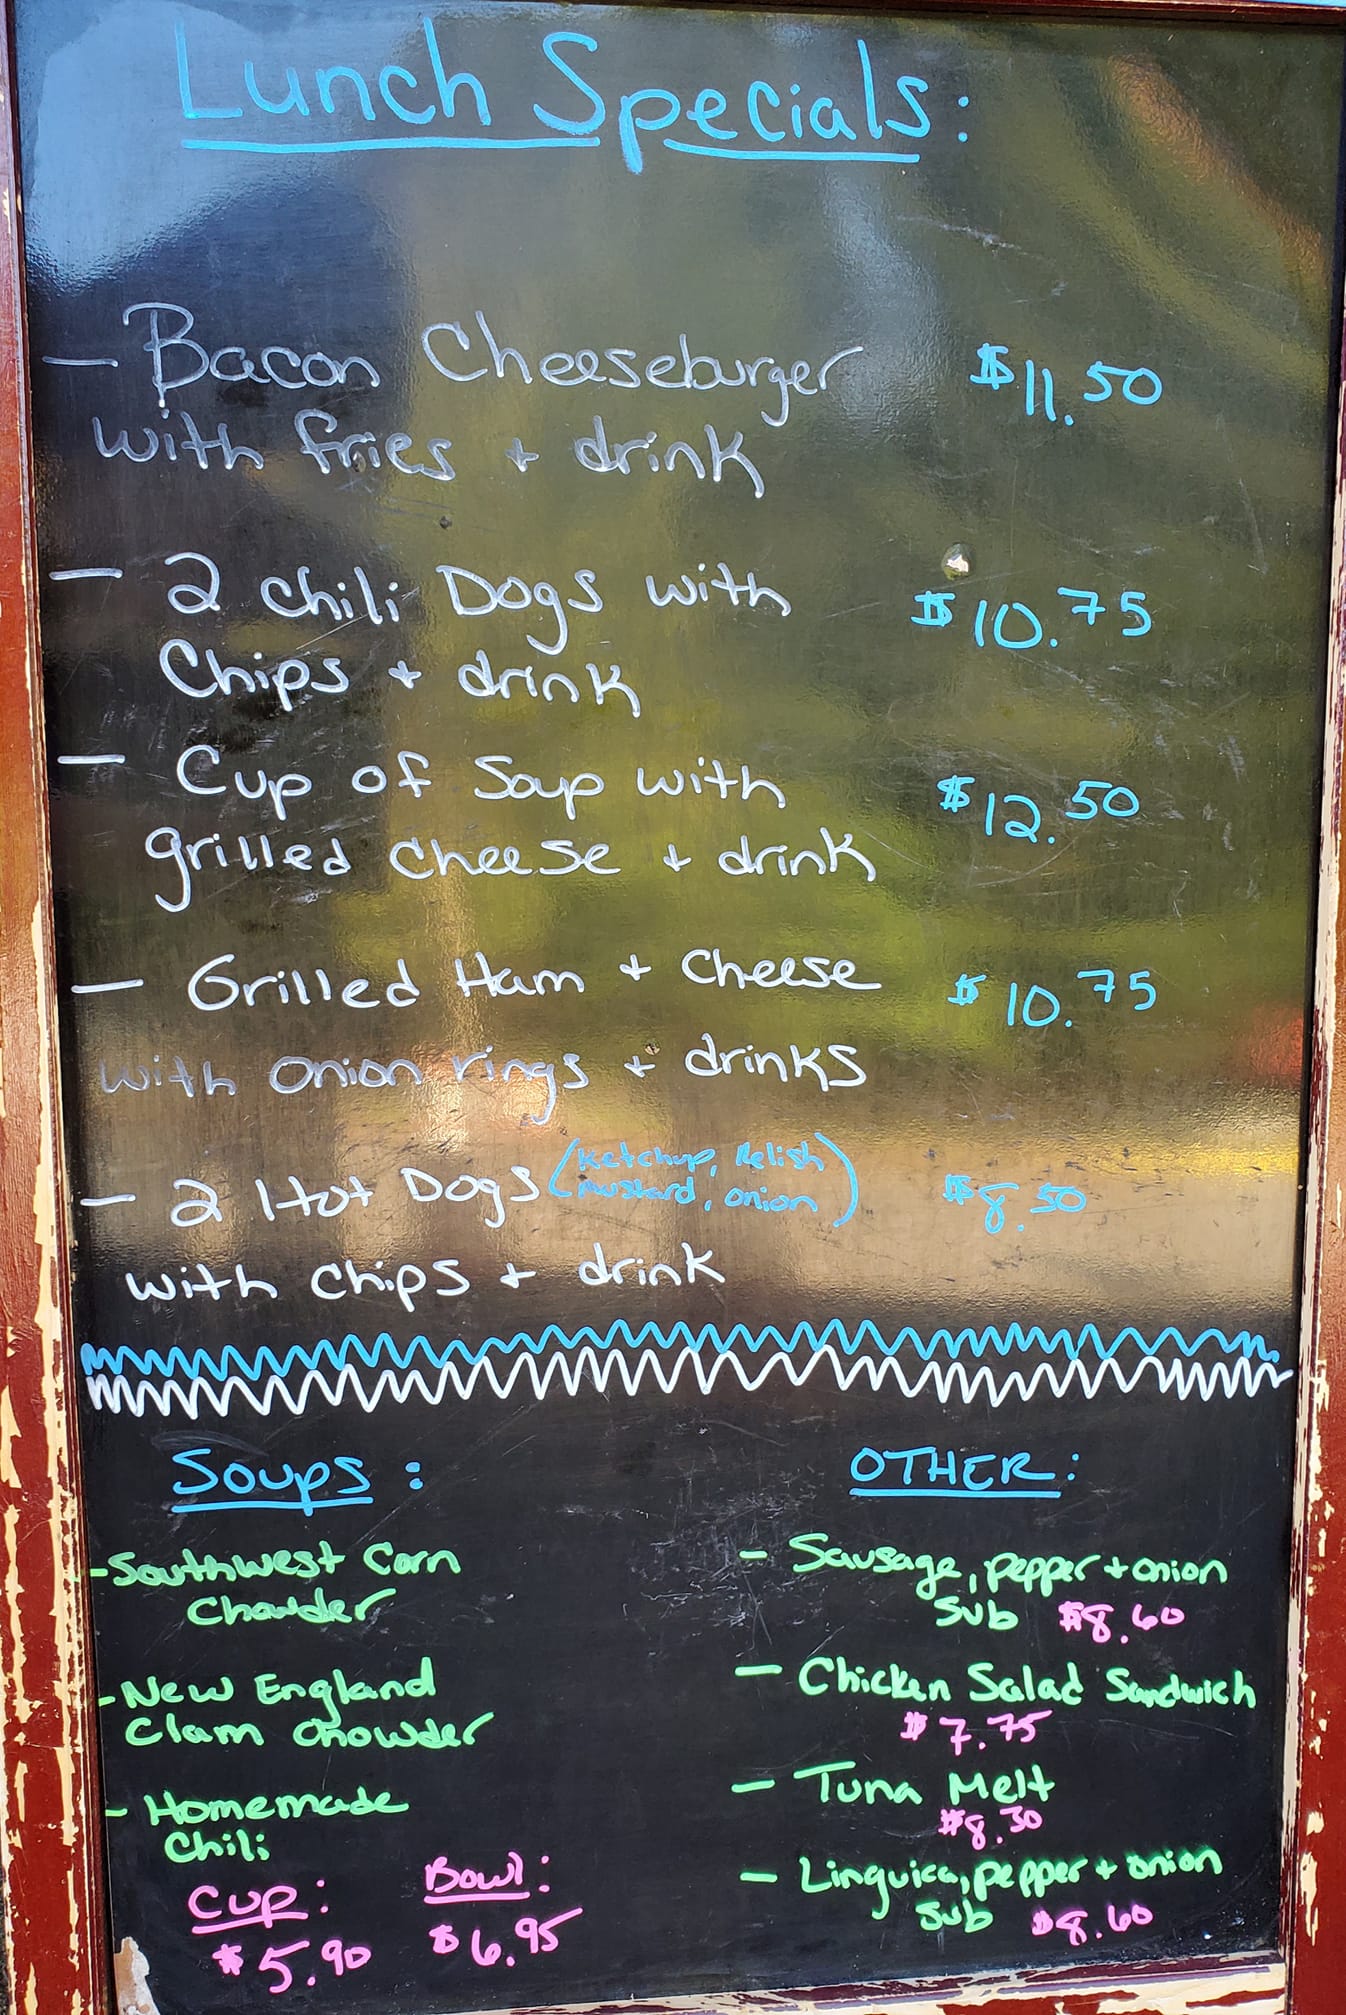 Lunch Specials:
- Bacon Cheeseburger $11.50
with fries + drink
- 2 Chili Dogs with $10.75
Chips + drink
- Cup of Soup with $12.50
grilled cheese + drink
- Grilled Ham + Cheese $10.75
with onion rings + drinks
- 2 Hot Dogs (Ketchup, Relish $8.50
mustard, onion)
with chips + drink
Soups:
-Southwest Corn
Chowder
-New England
Clam Chowder
- Homemade
Chili
Cup: Bowl:
$5.90 $6.95
OTHER:
- Sausage, pepper + onion
Sub $8.60
- Chicken Salad Sandwich
$7.75
- Tuna Melt
$8.30
- Linguica, pepper + onion
Sub $8.60